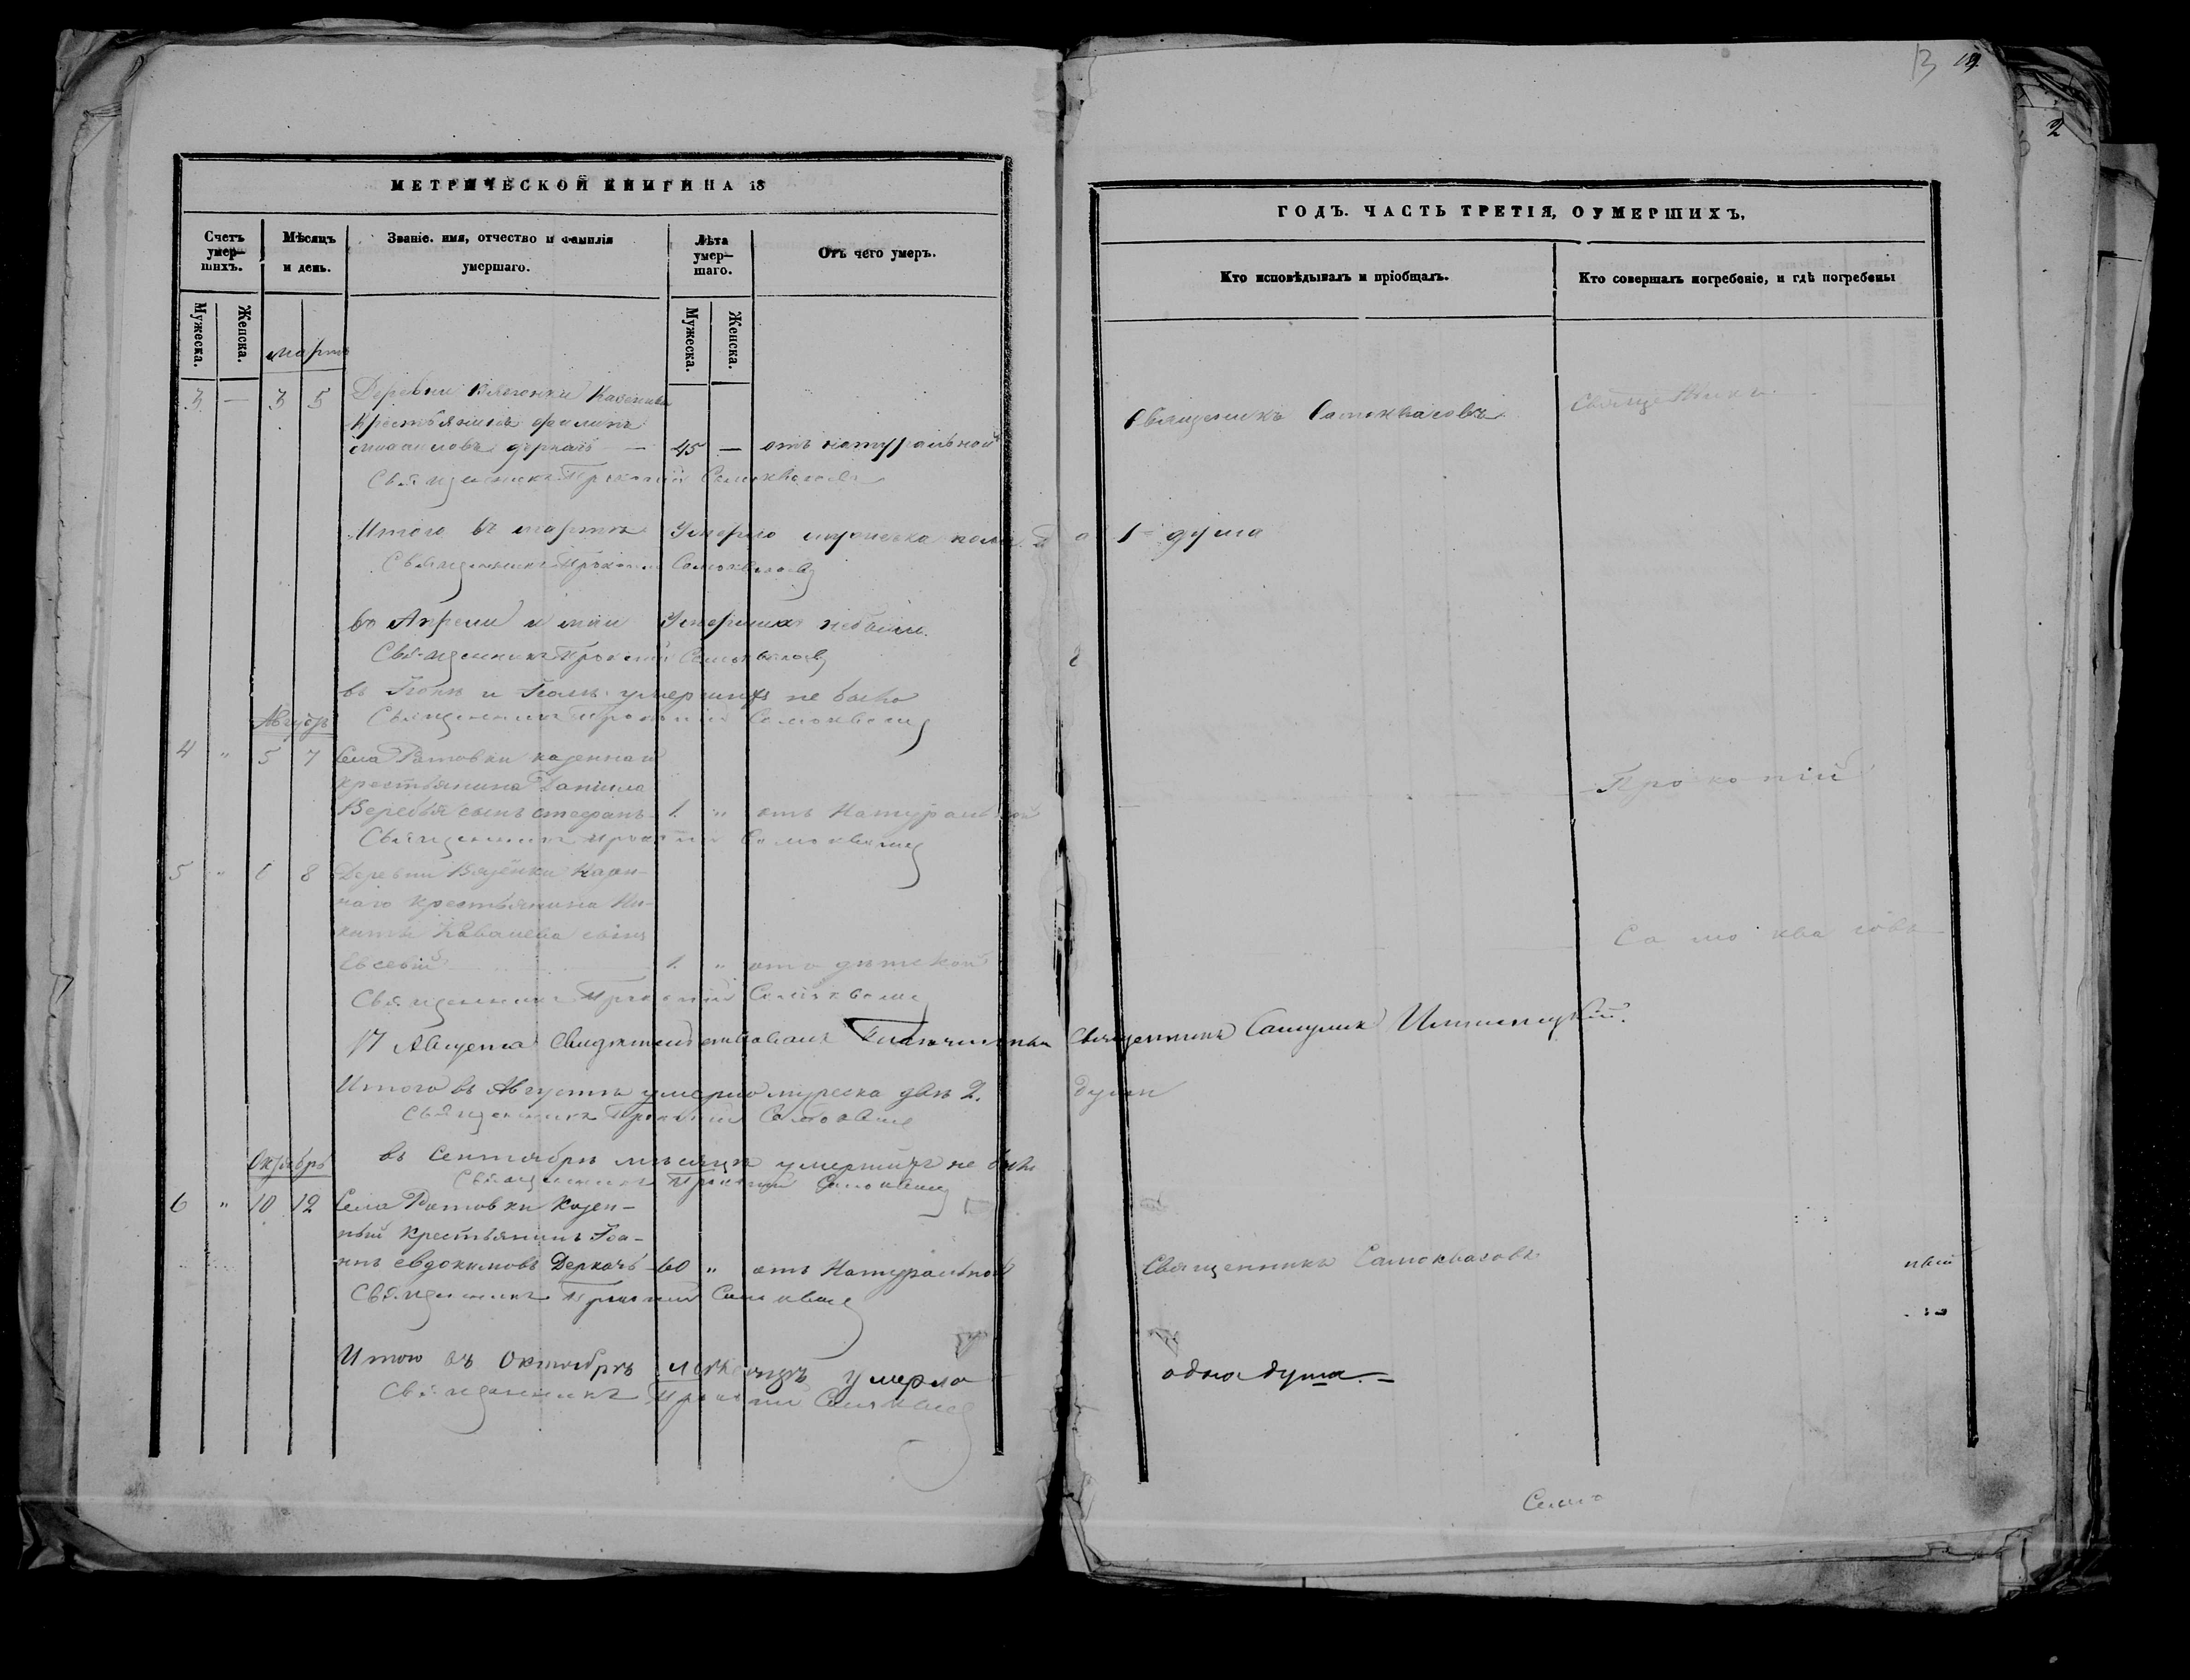 13 19
2
МЕТРИЧЕСКОЙ КНИГИ НА 18
ГОДЪ. ЧАСТЬ ТРЕТІЯ, О УМЕРШИХЪ.
Счетъ умер-шихъ.
Мѣсяцъ и день.
Званіе. имя, отчество и фамилія умершаго.
Лѣта умер-шаго.
Отъ чего умеръ.
Кто исповѣдывалъ и пріобщалъ.
Кто совершалъ погребеніе, и гдѣ погребены
Мужеска. Женска.
Мужеска. Женска.
мартъ
3 — 3 5 Деревни
крестьянинъ Филипъ
45 — отъ натуральной
Священникъ Самоквасовъ
Священникъ Прокопій Самоквасовъ
Итого въ мартѣ умерло мужеска пола
1 душа
Священникъ Прокопій Самоквасовъ
во Апрели и маи умершихъ небыли.
Священникъ Прокопій Самоквасовъ
въ Іюнѣ и Іюлѣ умершихъ не было
Священникъ Прокопій Самоквасовъ
Августъ
4 " 5 7 Села Ратовки казеннаго
крестьянина Даніила
Веребья сынъ Стефанъ 1. " отъ Натуральной
Прокопій
Священникъ Прокопій Самоквасовъ
5 " 6 8 Деревни Вязенки казен-
наго крестьянина Ни-
киты сынъ
Евсевій 1. " отъ дѣтской
Самоквасовъ
Священникъ Прокопій Самоквасовъ
17 Августа Свидѣтельствовалъ Благочинный Священникъ
Итого въ Августѣ умерло мужеска двѣ 2. души
Священникъ Прокопій Самоквасовъ
въ Сентябрѣ мѣсяцѣ умершихъ не было
Священникъ Прокопій Самоквасовъ
Октябрь
6 " 10 12 Села Ратовки казен-
ный крестьянинъ Іоа-
ннъ Евдокимовъ Деркачъ 60 " отъ Натуральной
Священникъ Самоквасовъ
Священникъ Прокопій Самоквасовъ
Итого въ Октябрѣ мѣсяцѣ умерло
одна душа.
Священникъ Прокопій Самоквасовъ